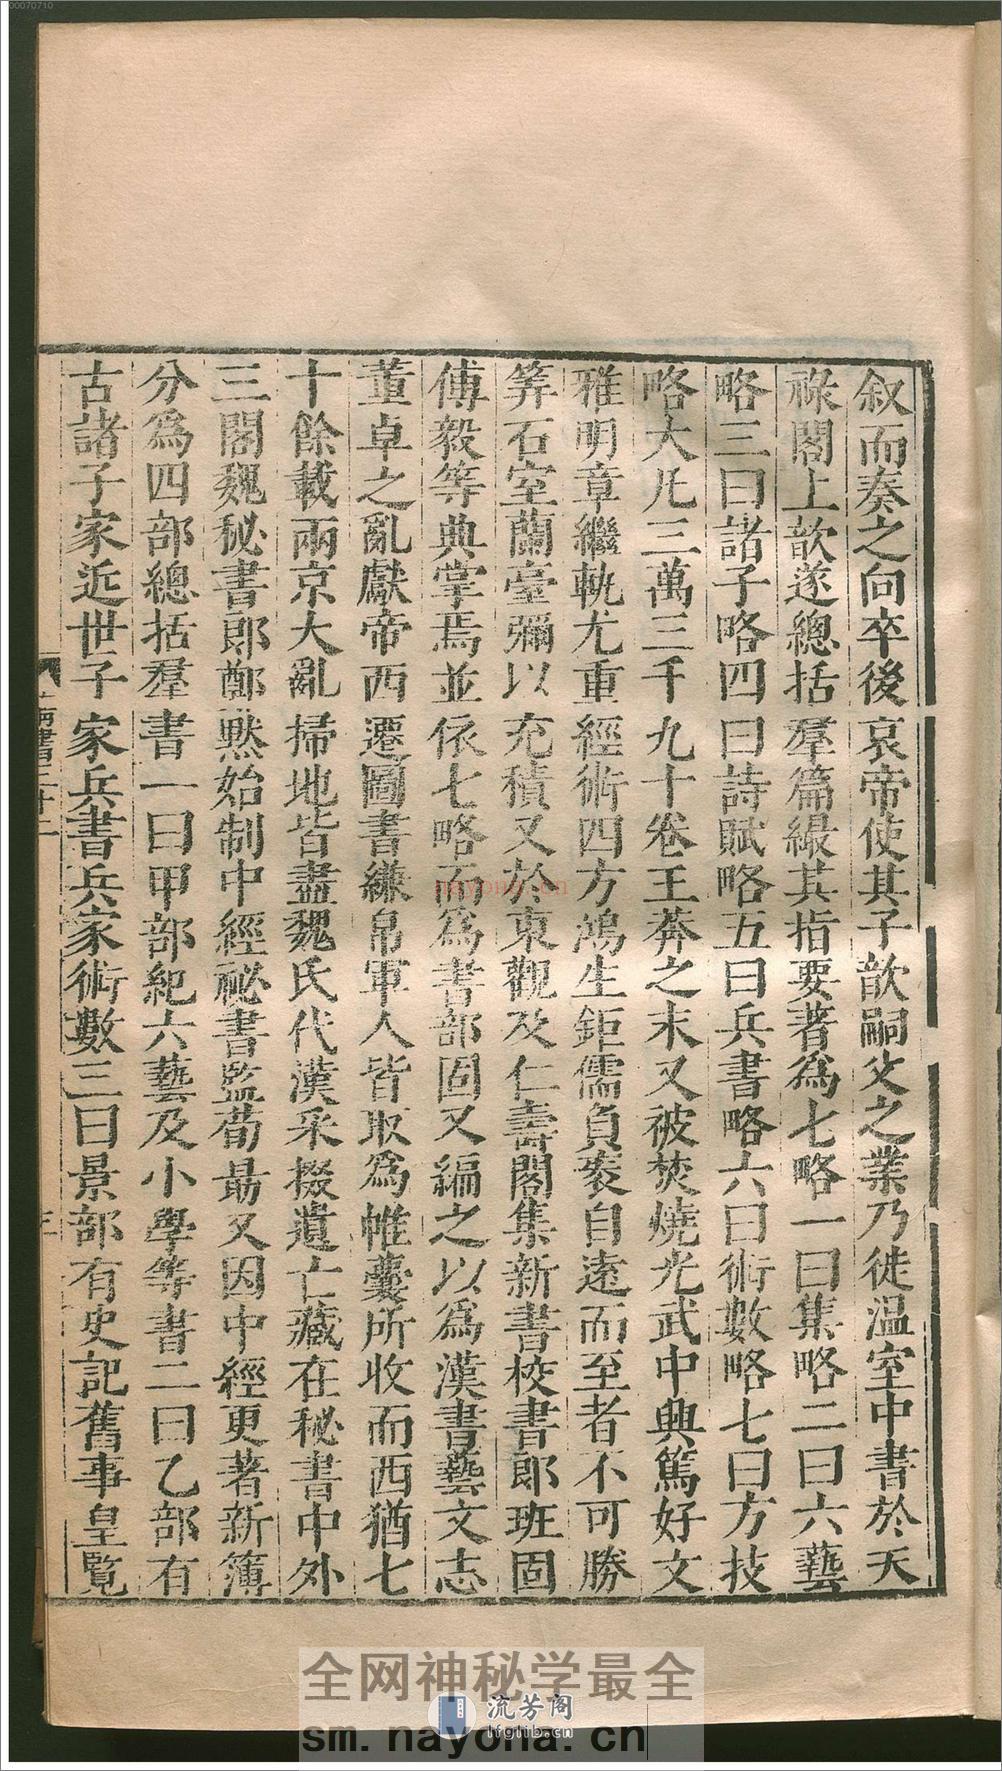 叙而奏之向卒後哀帝使其子歆嗣父之業乃徙温室中書於天
祿閣上歆遂總括羣篇緝其指要著為七略一曰集略二曰六藝
略三曰諸子略四曰詩賦略五曰兵書略六曰術數略七曰方技
略大凡三萬三千九十卷王莽之末又被焚燒光武中興篤好文
雅明章繼軌尤重經術四方鴻生鉅儒負袠自遠而至者不可勝
筭石室蘭臺彌以充積又於東觀及仁壽閣集新書校書郎班固
傅毅等典掌焉並依七略而為書部固又編之以為漢書藝文志
董卓之亂獻帝西遷圖書縑帛軍人皆取為帷囊所收而西猶七
十餘載兩京大亂掃地皆盡魏氏代漢采掇遺亡藏在秘書中外
三閣魏秘書郎鄭黙始制中經祕書監荀勗又因中經更著新簿
分為四部總括羣書一曰甲部紀六藝及小學等書二曰乙部有
古諸子家近世子家兵書兵家術數三曰景部有史記舊事皇覽
00070710
nayona.cn
全网神秘学最全
流芳阁
lfglib.cn
sm.nayona.cn